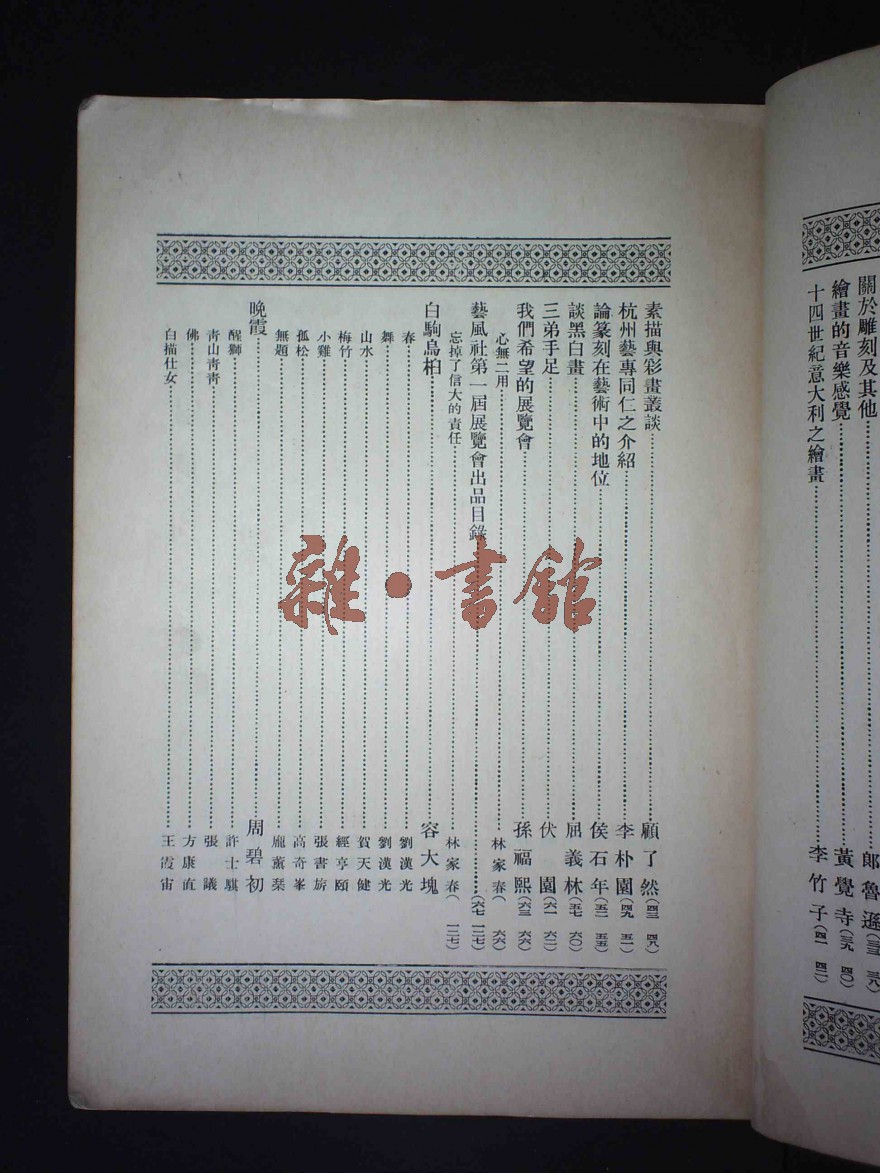 關於雕刻及其他……郎魯遜(三三 三八)
繪畫的音樂感覺……黃覺寺(三九 四〇)
十四世紀意大利之繪畫……李竹子(四一 四二)
素描與彩畫叢談……顧了然(四三 四八)
杭州藝專同仁之介紹……李朴園(四九 五一)
論篆刻在藝術中的地位……侯石年(五二 五五)
談黑白畫……屈義林(五七 六〇)
三弟手足……伏園(六一 六二)
我們希望的展覽會……孫福熙(六三 六六)
心無二用……林家春( 六六)
藝風社第一屆展覽會出品目錄……(六七 一二七)
忘掉了信大的責任……林家春( 一二七)
白駒烏桕……容大塊
春……劉漢光
舞……劉漢光
山水……賀天健
梅竹……經亨頤
小雞……張書旂
孤松……高奇峯
無題……龐薰琹
晚霞……周碧初
醒獅……許士騏
青山青青……張議
佛……方康直
白描仕女……王霞宙
雜·書館